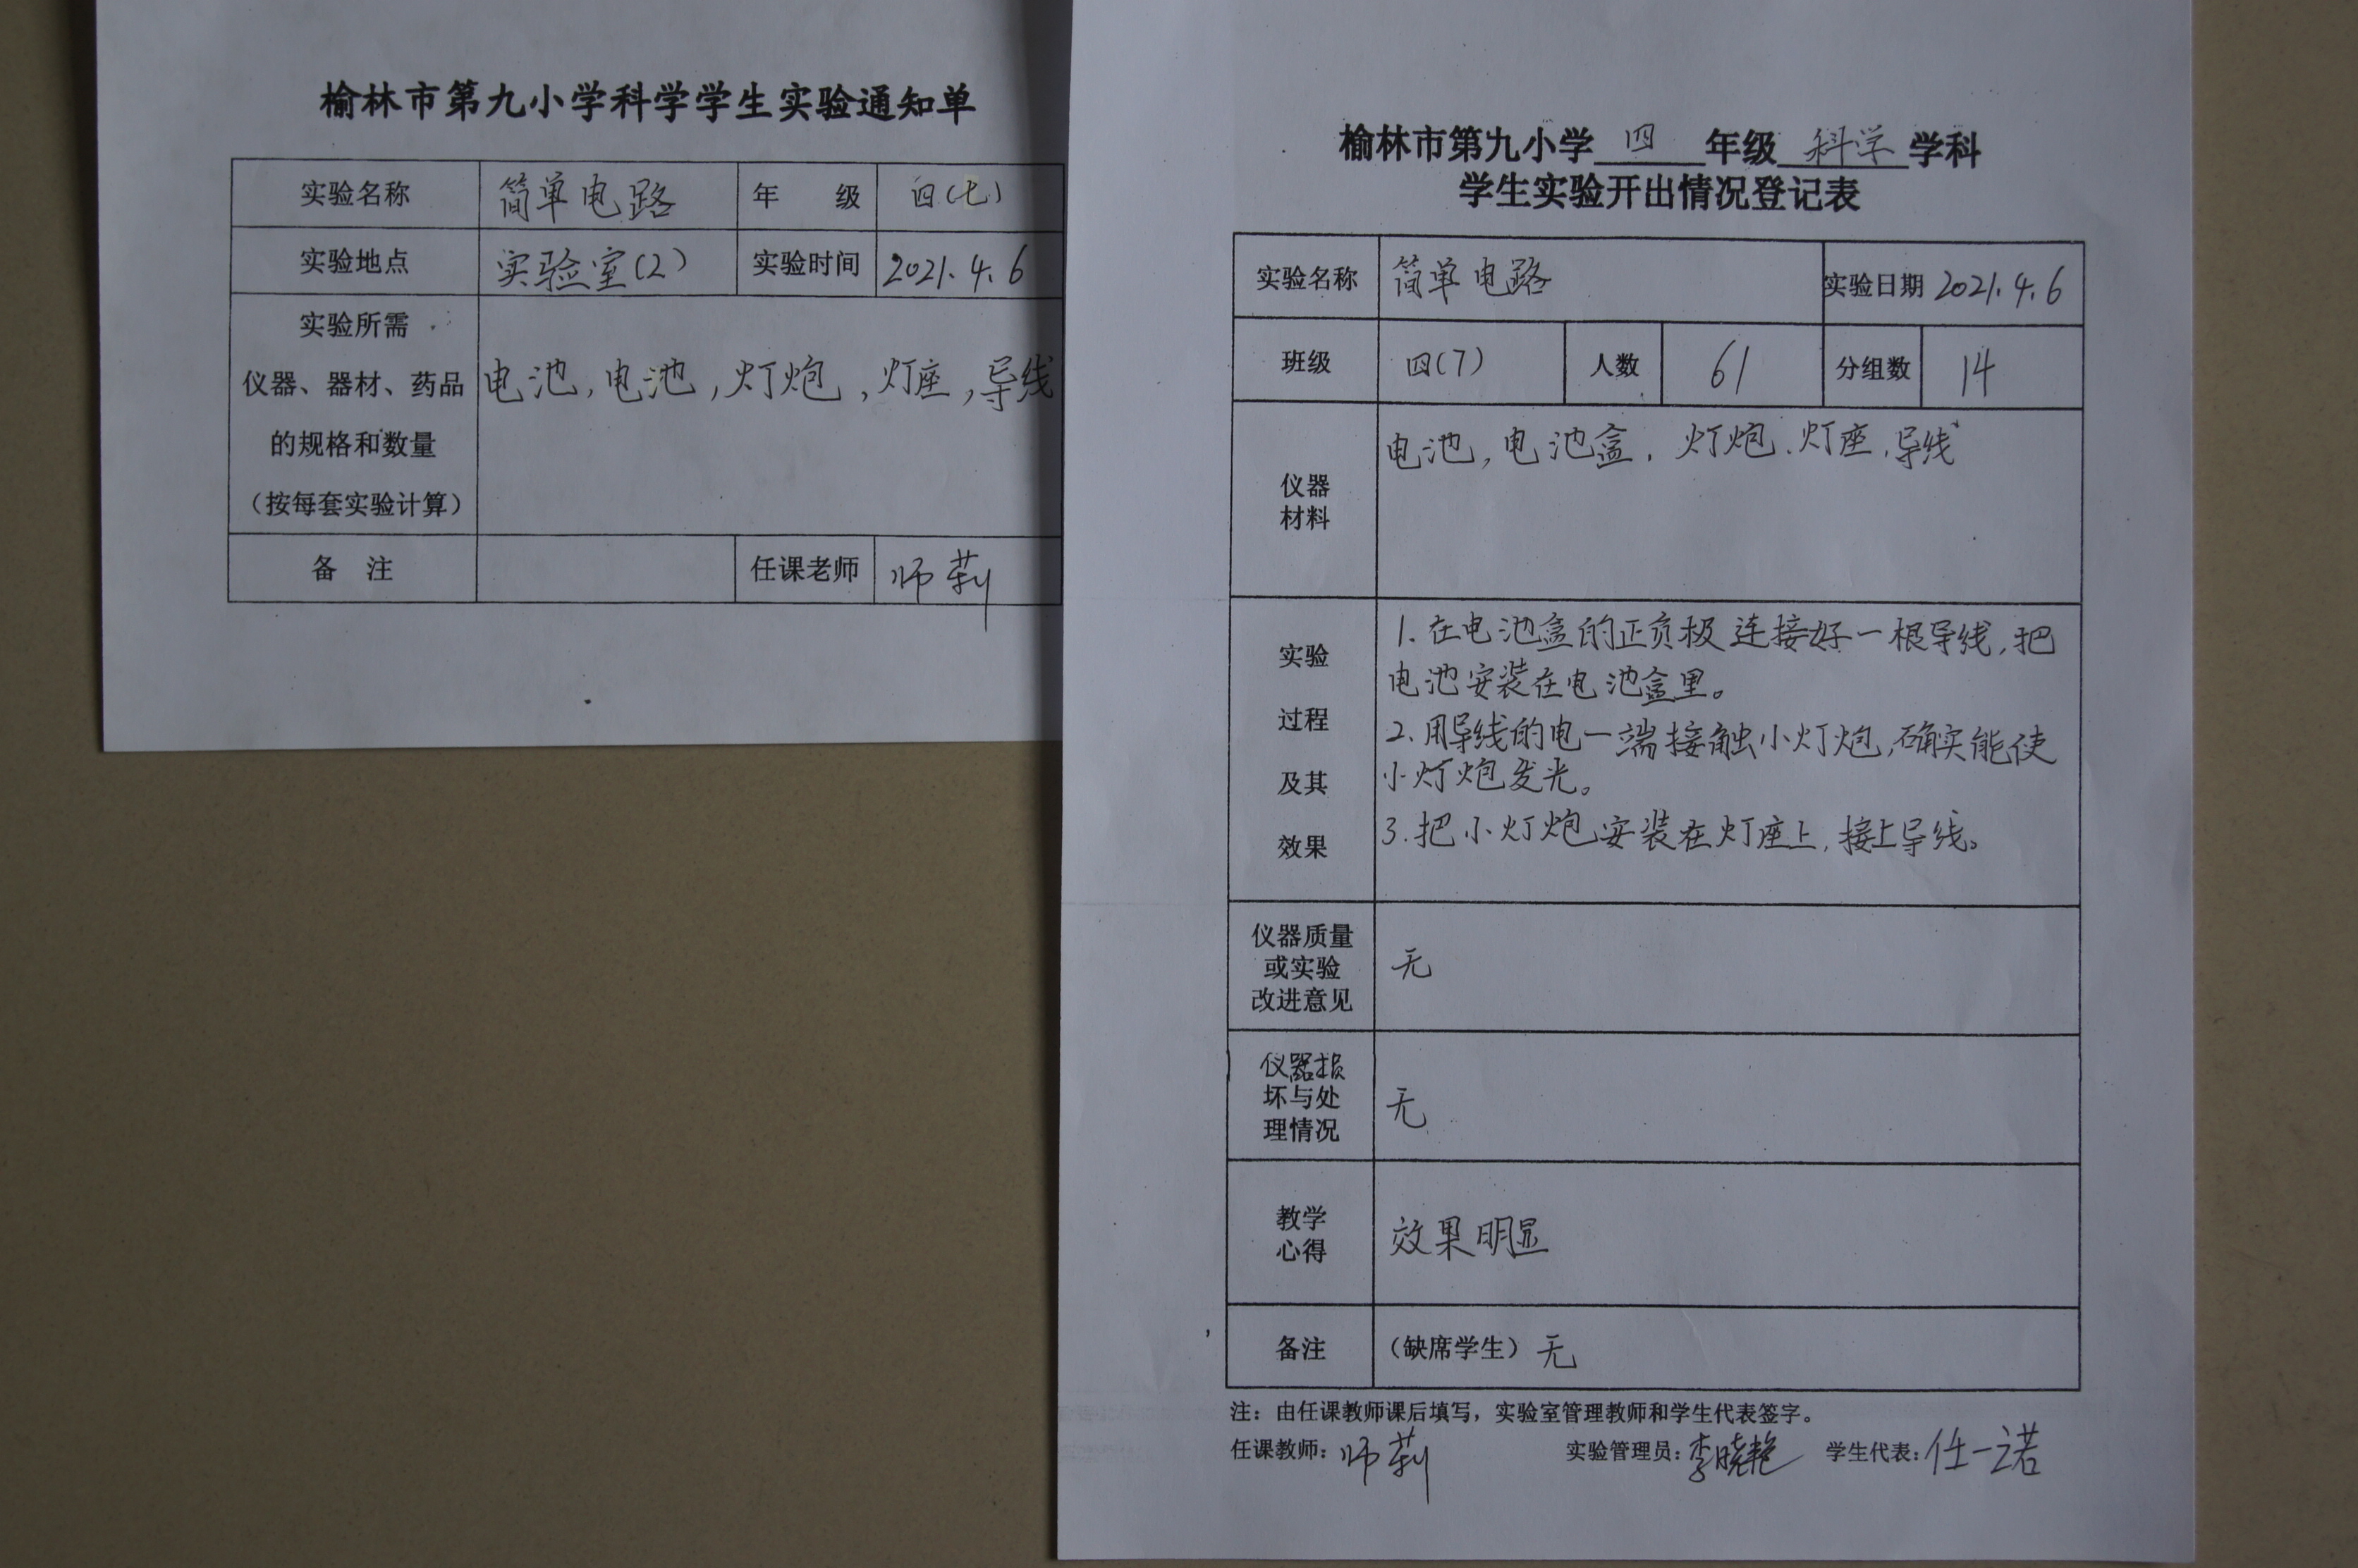 榆林市第九小学科学学生实验通知单
实验名称 简单电路 年 级 四(七)
实验地点 实验室(2) 实验时间 2021.4.6
实验所需
仪器、器材、药品
的规格和数量
（按每套实验计算）
电池,电池,灯炮,灯座,导线
备 注 任课老师 师莉
榆林市第九小学 四 年级 科学 学科
学生实验开出情况登记表
实验名称 简单电路 实验日期 2021.4.6
班级 四(7) 人数 61 分组数 14
仪器
材料
电池,电池盒,灯炮、灯座,导线
实验
过程
及其
效果
1.在电池盒的正负极连接好一根导线,把
电池安装在电池盒里。
2.用导线的电一端接触小灯炮,确实能使
小灯炮发光。
3.把小灯炮安装在灯座上,接上导线。
仪器质量
或实验
改进意见
无
仪器损
坏与处
理情况
无
教学
心得
效果明显
备注 （缺席学生）无
注：由任课教师课后填写，实验室管理教师和学生代表签字。
任课教师：师莉 实验管理员：李晓艳 学生代表：任一诺